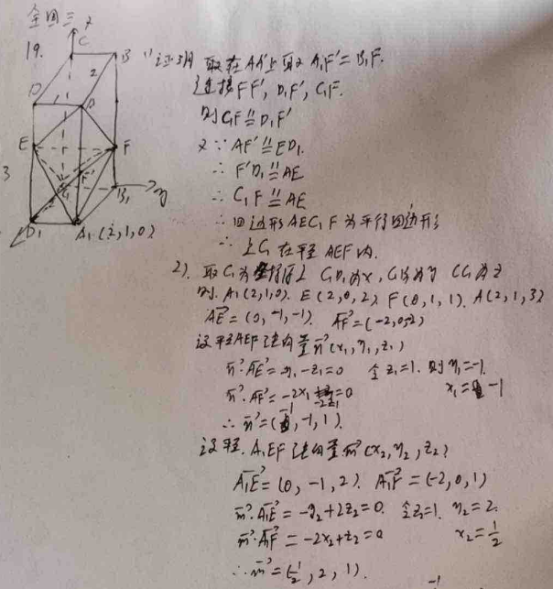 全国三
19.
z
C
B
2
D
A
E
F
F'
3
C₁
B₁
y
D₁
A₁(2,1,0)
1) 证明 取在AA₁上取A₁F'=B₁F.
连接FF', D₁F', C₁F.
则C₁F∥=D₁F'
又∵AF'∥=ED₁
∴F'D₁∥=AE
∴C₁F∥=AE
∴四边形AEC₁F为平行四边形
∴点C₁在平面AEF内.
2). 取C₁为坐标原点 C₁D₁为x, C₁B₁为y CC₁为z
则. A₁(2,1,0). E(2,0,2) F(0,1,1). A(2,1,3)
AE=(0,-1,-1). AF=(-2,0,-2)
设平AEF法向量n(x₁,y₁,z₁)
n·AE=-y₁-z₁=0 令z₁=1. 则y₁=-1.
n·AF=-2x₁-2z₁=0 x₁=-1
∴n=(-1,-1,1).
设平. A₁EF法向量m(x₂,y₂,z₂)
A₁E=(0,-1,2). A₁F=(-2,0,1)
m·A₁E=-y₂+2z₂=0. 令z₂=1. y₂=2.
m·A₁F=-2x₂+z₂=0 x₂=1/2
∴m=(1/2,2,1).